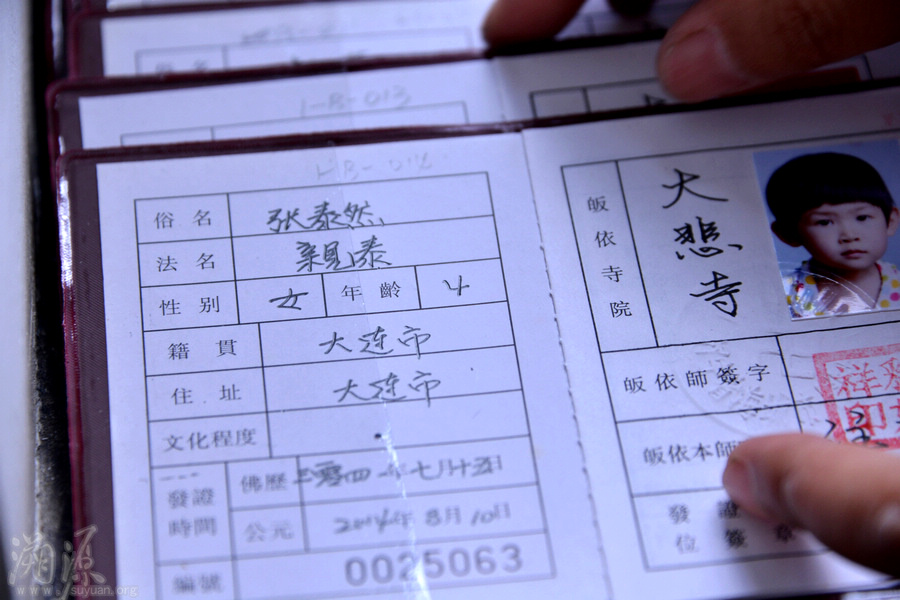 1-B-013
1-B-012
俗名 张泰然
法名 親泰
性别 女 年齡 4
籍貫 大连市
住址 大连市
文化程度
發證時間
佛歷 七月十五日
公元 2014年8月10日
編號 0025063
皈依寺院 大悲寺
皈依師簽字
皈依本師
發證
位簽章
祥
印
溯源
www.suyuan.org